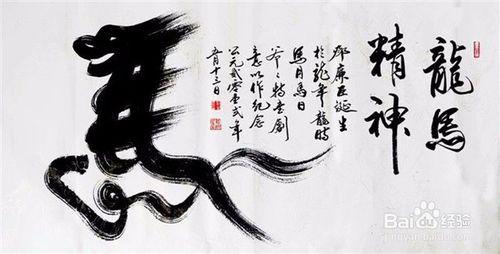 龍馬
精神
邓廉臣誕生
於龍年龍時
馬月馬日
爷々特書創
意以作紀念
公元貳零壹貳年
五月十三日
馬
Bai du 经验
jingyan.baidu.com